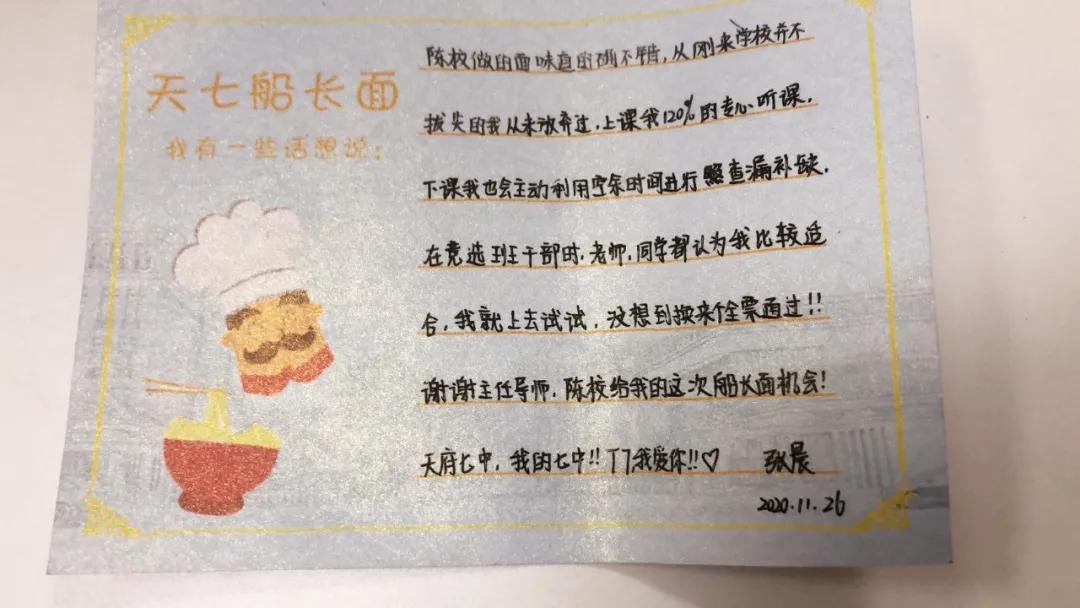 天七船长面
我有一些话想说:
陈校做的面味道的确不错,从刚来学校并不
拔尖的我从未放弃过,上课我120%的专心听课,
下课我也会主动利用空余时间进行查漏补缺,
在竞选班干部时,老师,同学都认为我比较适
合,我就上去试试,没想到换来个全票通过!!
谢谢主任导师,陈校给我的这次船长面机会!
天府七中,我的七中!!T7,我爱你!!♡ 张晨
2020.11.26